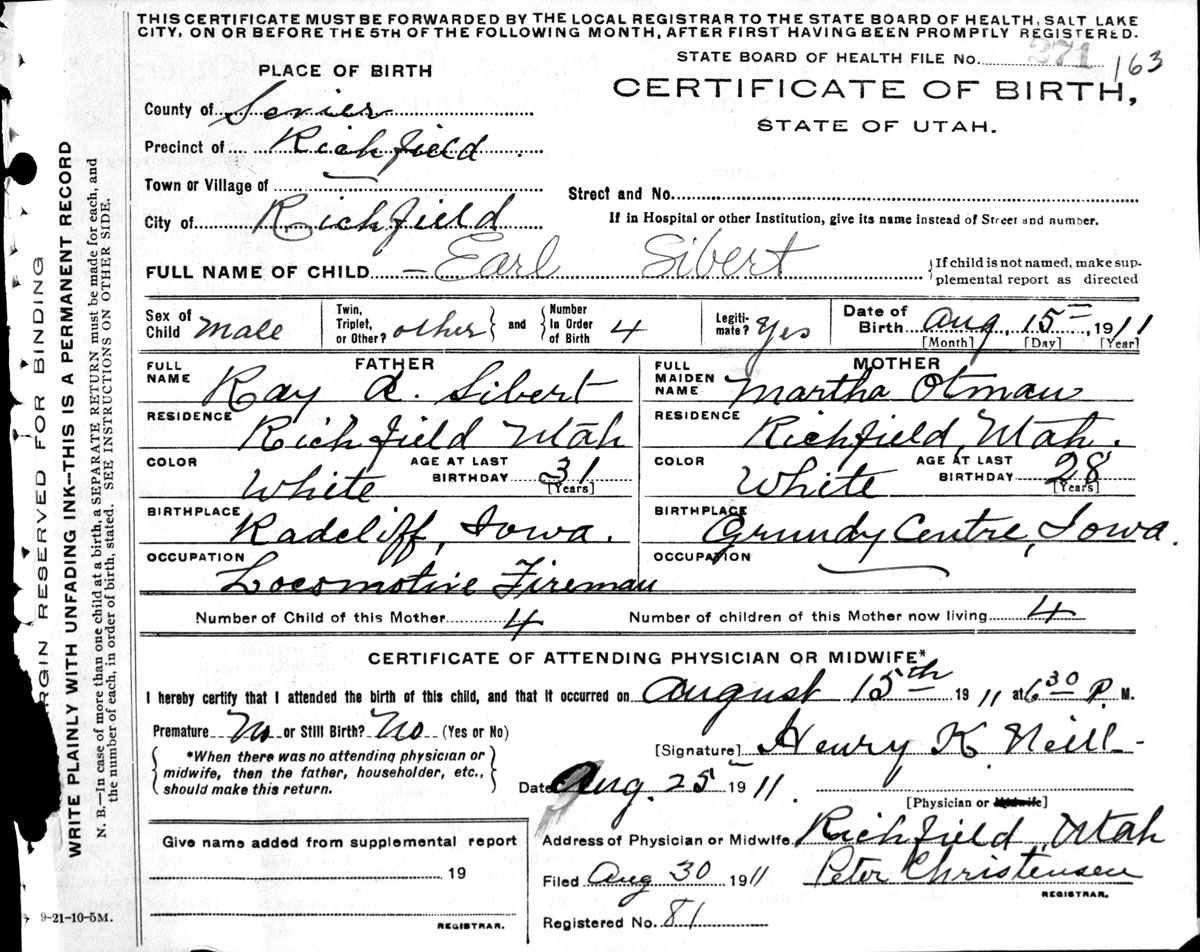 THIS CERTIFICATE MUST BE FORWARDED BY THE LOCAL REGISTRAR TO THE STATE BOARD OF HEALTH, SALT LAKE
CITY, ON OR BEFORE THE 5TH OF THE FOLLOWING MONTH, AFTER FIRST HAVING BEEN PROMPTLY REGISTERED.
STATE BOARD OF HEALTH FILE No. 271 163
PLACE OF BIRTH
CERTIFICATE OF BIRTH,
STATE OF UTAH.
County of Sevier
Precinct of Richfield
Town or Village of
Street and No.
City of Richfield
If in Hospital or other Institution, give its name instead of Street and number.
FULL NAME OF CHILD — Earl Sibert
{If child is not named, make sup-
plemental report as directed
Sex of Child Male
Twin, Triplet, or Other? other } and { Number In Order of Birth 4
Legiti-mate? Yes
Date of Birth Aug 15 1911
[Month] [Day] [Year]
FATHER
FULL NAME Ray A. Sibert
RESIDENCE Richfield Utah
COLOR White AGE AT LAST BIRTHDAY 31 [Years]
BIRTHPLACE Radcliff, Iowa.
OCCUPATION Locomotive Fireman
MOTHER
FULL MAIDEN NAME Martha Otman
RESIDENCE Richfield, Utah.
COLOR White AGE AT LAST BIRTHDAY 28 [Years]
BIRTHPLACE Grundy Centre, Iowa.
OCCUPATION
Number of Child of this Mother 4 Number of children of this Mother now living 4
CERTIFICATE OF ATTENDING PHYSICIAN OR MIDWIFE*
I hereby certify that I attended the birth of this child, and that it occurred on August 15th 1911 at 6 30 P. M.
Premature No or Still Birth? No (Yes or No)
*When there was no attending physician or
midwife, then the father, householder, etc.,
should make this return.
[Signature] Henry K. Neill
Date Aug. 25 1911.
[Physician or Midwife]
Give name added from supplemental report
19
REGISTRAR.
Address of Physician or Midwife Richfield, Utah
Filed Aug 30 1911 Peter Christensen
REGISTRAR.
Registered No. 81
9-21-10-5M.
MARGIN RESERVED FOR BINDING
WRITE PLAINLY WITH UNFADING INK--THIS IS A PERMANENT RECORD
N. B.—In case of more than one child at a birth, a SEPARATE RETURN must be made for each, and
the number of each, in order of birth, stated. SEE INSTRUCTIONS ON OTHER SIDE.